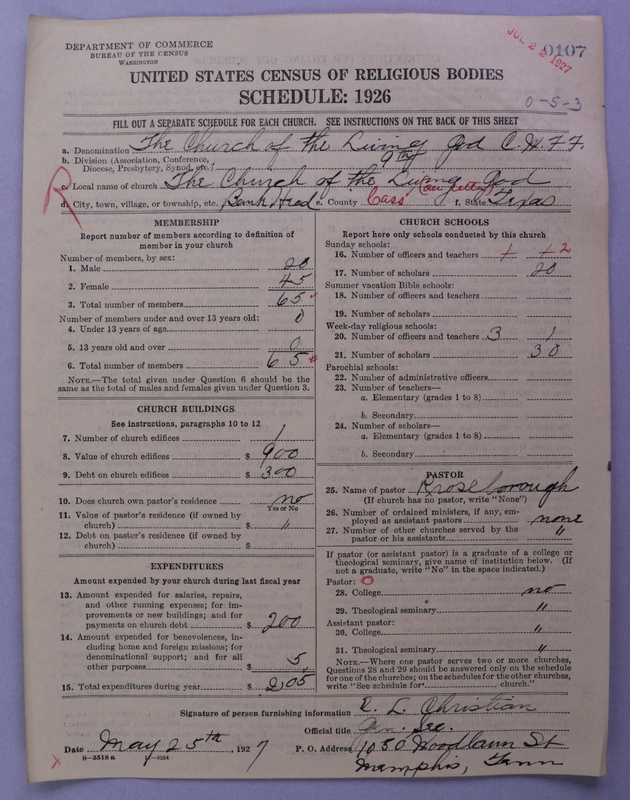 DEPARTMENT OF COMMERCE
BUREAU OF THE CENSUS
WASHINGTON
JUL 22 1927
0107
UNITED STATES CENSUS OF RELIGIOUS BODIES
SCHEDULE: 1926
0-5-3
FILL OUT A SEPARATE SCHEDULE FOR EACH CHURCH. SEE INSTRUCTIONS ON THE BACK OF THIS SHEET
a. Denomination The Church of the Living God C.W.F.F.
b. Division (Association, Conference, Diocese, Presbytery, Synod, etc.) 9th
c. Local name of church The Church of the Living God
d. City, town, village, or township, etc. e. County Cass f. State Texas
MEMBERSHIP
Report number of members according to definition of
member in your church
Number of members, by sex:
1. Male 20
2. Female 45
3. Total number of members 65
Number of members under and over 13 years old:
4. Under 13 years of age 0
5. 13 years old and over 0
6. Total number of members 65
NOTE.—The total given under Question 6 should be
same as the total of males and females given under Question 3.
CHURCH BUILDINGS
See instructions, paragraphs 10 to 12
7. Number of church edifices 1
8. Value of church edifices $ 900
9. Debt on church edifices $ 300
10. Does church own pastor's residence no
Yes or No
11. Value of pastor's residence (if owned by
church) $ "
12. Debt on pastor's residence (if owned by
church) $
EXPENDITURES
Amount expended by your church during last fiscal year
13. Amount expended for salaries, repairs,
and other running expenses; for im-
provements or new buildings; and for
payments on church debt $ 200
14. Amount expended for benevolences, in-
cluding home and foreign missions; for
denominational support; and for all
other purposes $ 5
15. Total expenditures during year $ 205
CHURCH SCHOOLS
Report here only schools conducted by this church
Sunday schools:
16. Number of officers and teachers 1 +2
17. Number of scholars 20
Summer vacation Bible schools:
18. Number of officers and teachers
19. Number of scholars
Week-day religious schools:
20. Number of officers and teachers 3 1
21. Number of scholars 30
Parochial schools:
22. Number of administrative officers
23. Number of teachers—
a. Elementary (grades 1 to 8)
b. Secondary
24. Number of scholars—
a. Elementary (grades 1 to 8)
b. Secondary
PASTOR
25. Name of pastor Kroseborough
(If church has no pastor, write "None")
26. Number of ordained ministers, if any, em-
ployed as assistant pastors none
27. Number of other churches served by the
pastor or his assistants "
If pastor (or assistant pastor) is a graduate of a college or
theological seminary, give name of institution below. (If
not a graduate, write "No" in the space indicated.)
Pastor:
28. College no
29. Theological seminary "
Assistant pastor:
30. College "
31. Theological seminary "
NOTE.—Where one pastor serves two or more churches,
Questions 28 and 29 should be answered only on the schedule
for one of the churches; on the schedules for the other churches,
write "See schedule for church."
Signature of person furnishing information E. L. Christian
Official title Gen. Sec.
Date May 25th, 1927 P. O. Address 1050 Woodlawn St
Memphis, Tenn
8-5518 a